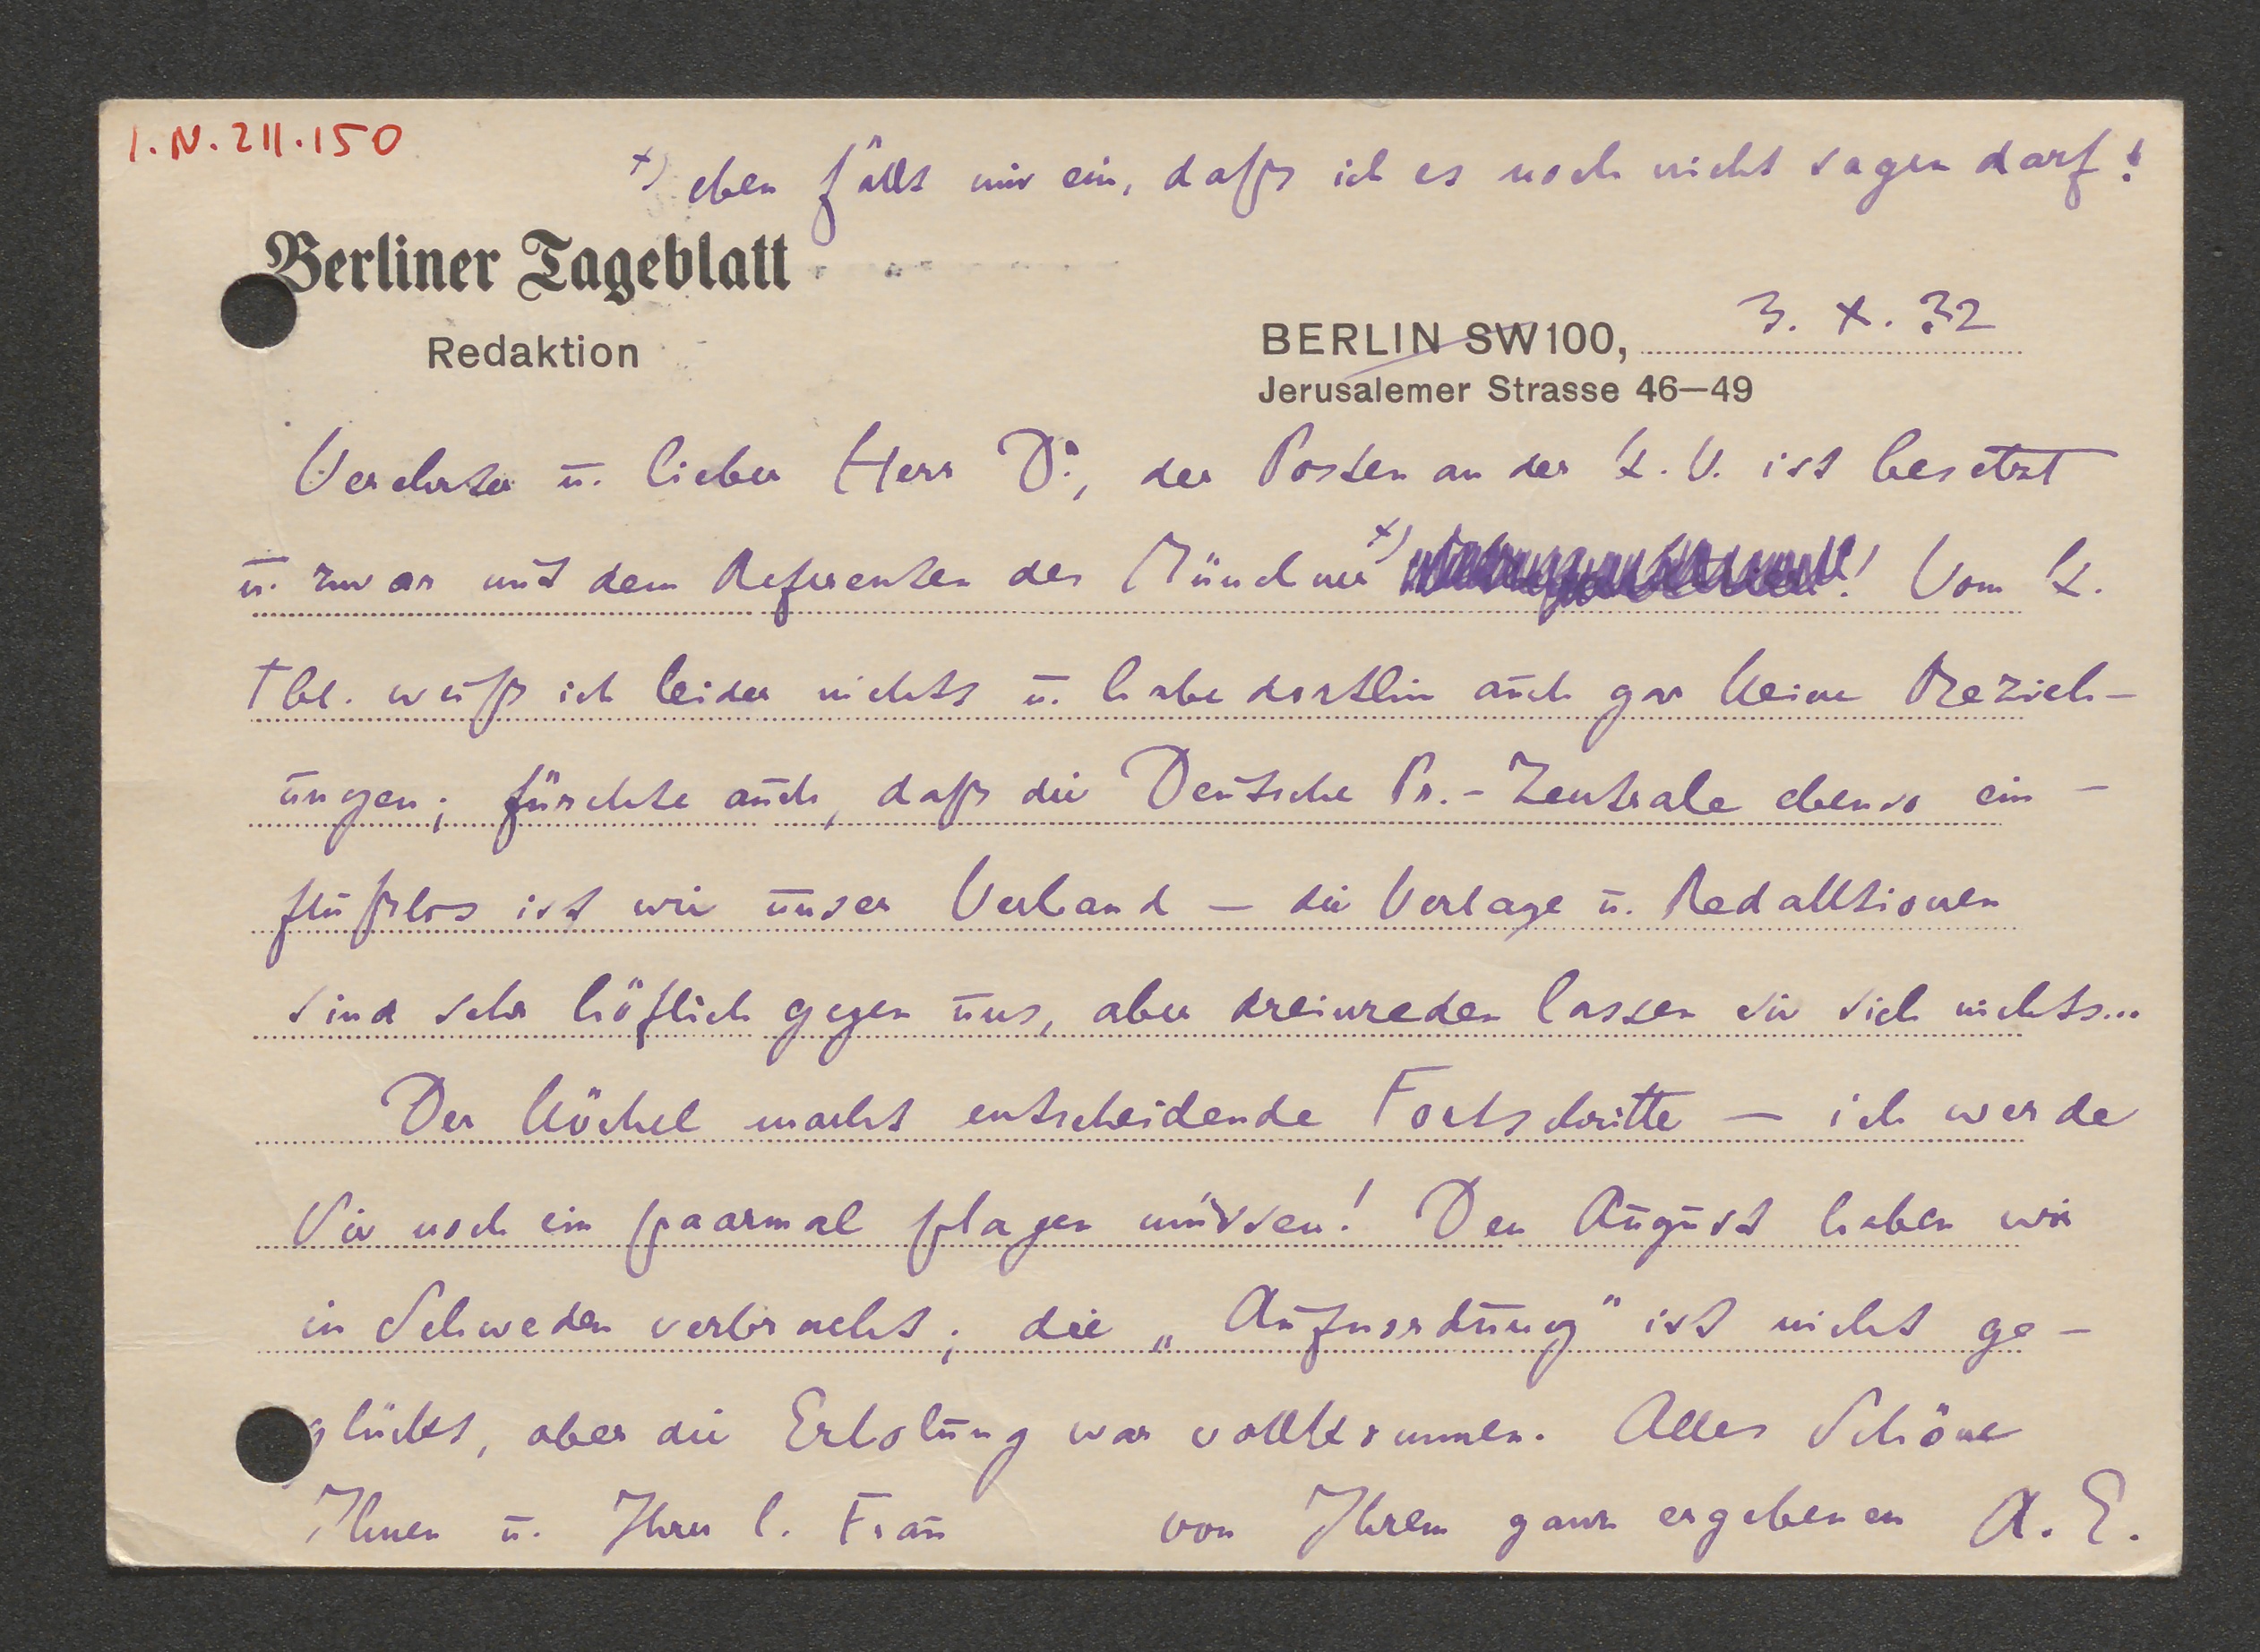 I.N. 211.150
+) eben fällt mir ein, daß ich es noch nicht sagen darf!
Berliner Tageblatt
Redaktion
3. X. 32
BERLIN SW 100,
Jerusalemer Strasse 46—49
Verehrter u. lieber Herr Dr, der Posten an der K. V. ist besetzt
u. zwar mit dem Referenten der Münchner +) ! Vom K.
Tbl. weiß ich leider nichts u. habe dorthin auch gar keine Bezieh-
ungen; fürchte auch, daß die Deutsche Pr.-Zentrale ebenso ein-
flußlos ist wie unser Verband — die Verlage u. Redaktionen
sind sehr höflich gegen uns, aber dreinreden lassen sie sich nichts...
Der Köchel macht entscheidende Fortschritte — ich werde
Sie noch ein paarmal plagen müssen! Den August haben wir
in Schweden verbracht; die „Aufnordung" ist nicht ge-
glückt, aber die Erholung war vollkommen. Alles Schöne
Ihnen u. Ihrer l. Frau von Ihrem ganz ergebenen A. E.